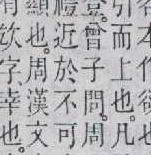 各本作也
引而上也凡
登曾子問周
禮近於不可
顯也周漢文
有字幸也